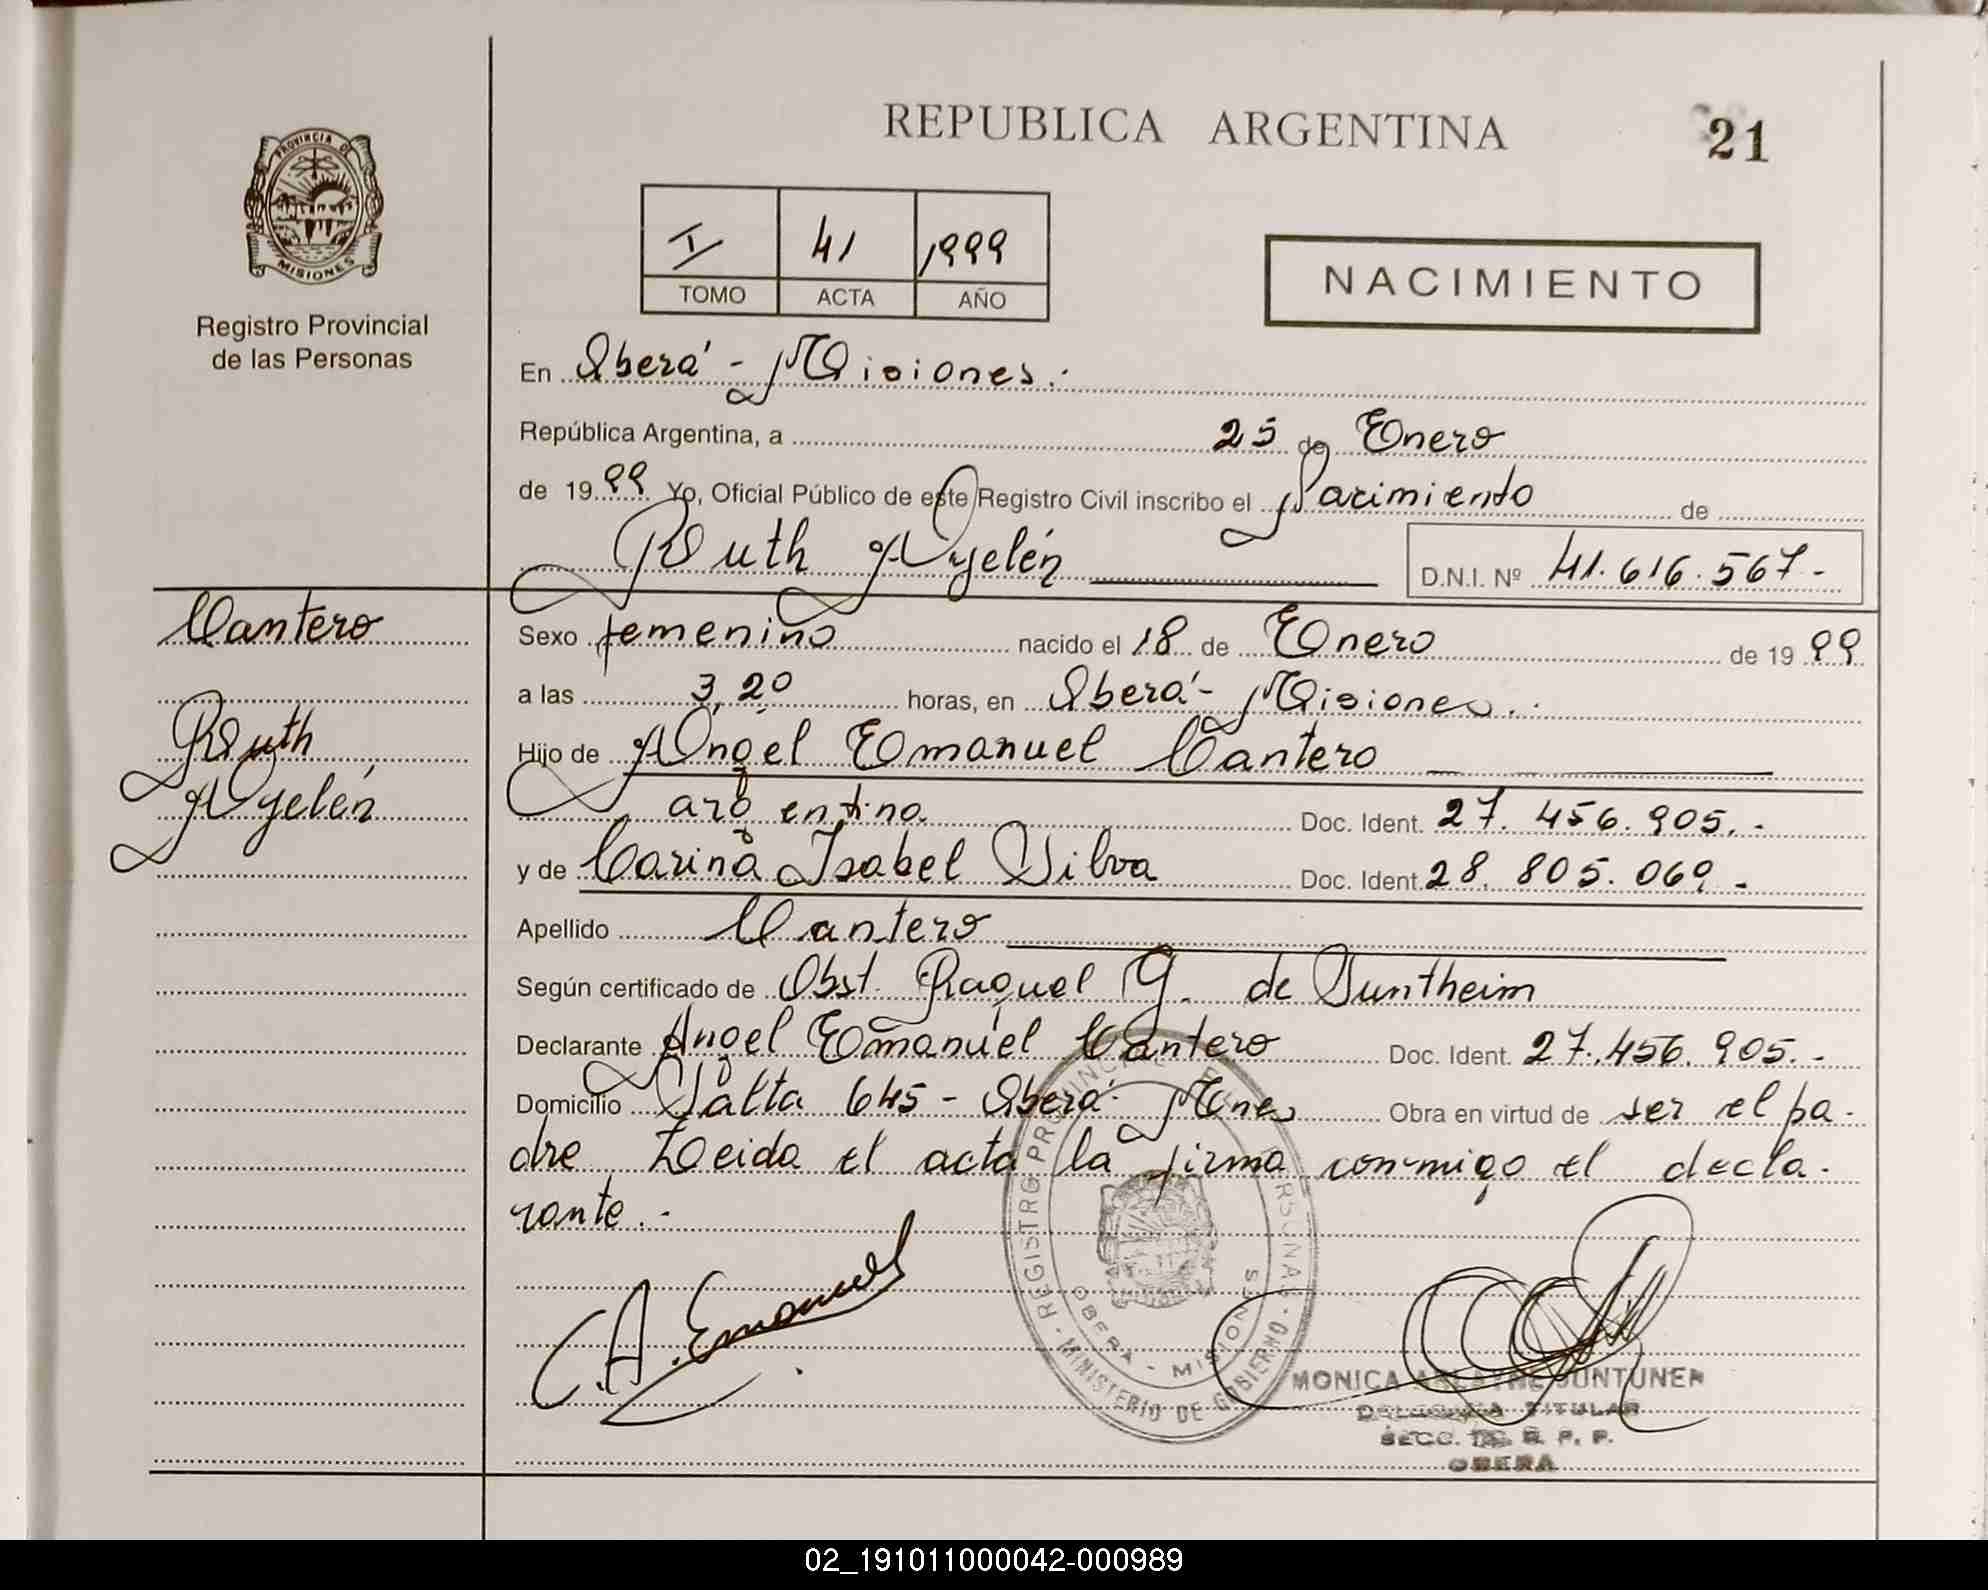 REPUBLICA ARGENTINA
21
PROVINCIA DE
MISIONES
Registro Provincial
de las Personas
I 41 1999
TOMO ACTA AÑO
NACIMIENTO
En Oberá - Misiones.-
República Argentina, a 25 de Enero
de 1999 Yo, Oficial Público de este Registro Civil inscribo el Nacimiento de
Ruth Ayelén D.N.I. Nº 41.616.567.-
Cantero
Ruth
Ayelén
Sexo femenino nacido el 18 de Enero de 1999
a las 3,20 horas, en Oberá - Misiones.-
Hijo de Angel Emanuel Cantero
argentino. Doc. Ident. 27.456.905.-
y de Carina Isabel Silva Doc. Ident. 28.805.069.-
Apellido Cantero
Según certificado de Obst. Raquel G. de Suntheim
Declarante Angel Emanuel Cantero Doc. Ident. 27.456.905.-
Domicilio Salta 645 - Oberá - Mnes Obra en virtud de ser el pa-
dre Leida el acta la firma conmigo el decla-
rante.-
C.A. Emanuel
REGISTRO PROVINCIAL DE PERSONAS - MINISTERIO DE GOBIERNO
OBERA - MISIONES
MONICA
TITULAR
SECC. R. P. P.
OBERA
02_191011000042-000989